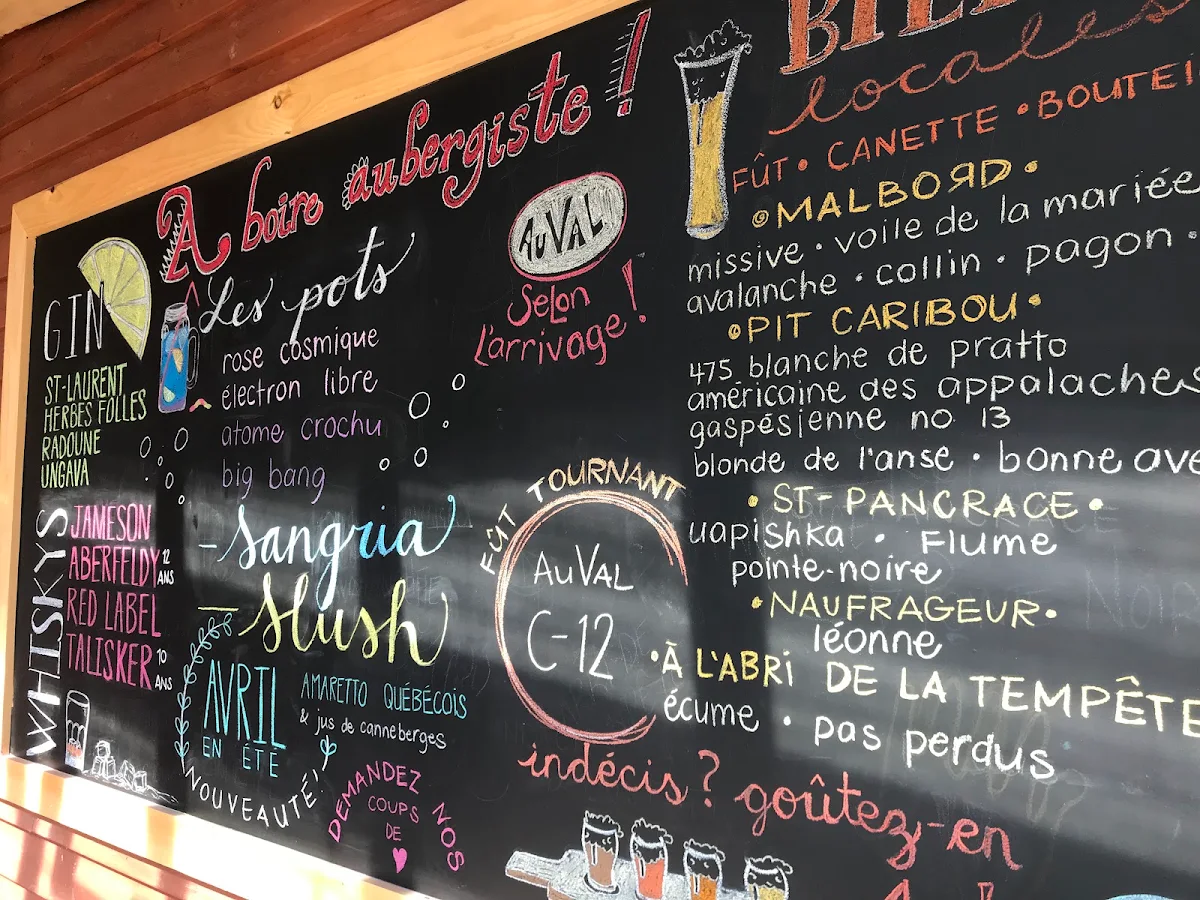 A boire aubergiste !
GIN
ST-LAURENT
HERBES FOLLES
RADOUNE
UNGAVA
WHISKYS
JAMESON
ABERFELDY 12 ANS
RED LABEL
TALISKER 10 ANS
Les pots
rose cosmique
électron libre
atome crochu
big bang
- Sangria
- Slush
AVRIL
EN ÉTÉ
AMARETTO QUÉBÉCOIS
& jus de canneberges
NOUVEAUTÉ!
DEMANDEZ NOS
COUPS
DE
AUVAL
Selon
l'arrivage!
FÛT TOURNANT
AUVAL
C-12
locales
FÛT • CANETTE •
• MALBORD •
missive • voile de la mariée
avalanche • collin • pagon •
• PIT CARIBOU •
475 blanche de pratto
américaine des appalaches
gaspésienne no 13
blonde de l'anse • bonne
• ST-PANCRACE •
uapishka • Flume
pointe-noire
• NAUFRAGEUR •
léonne
• À L'ABRi DE LA TEMPÊTE
écume • pas perdus
indécis? goûtez-en